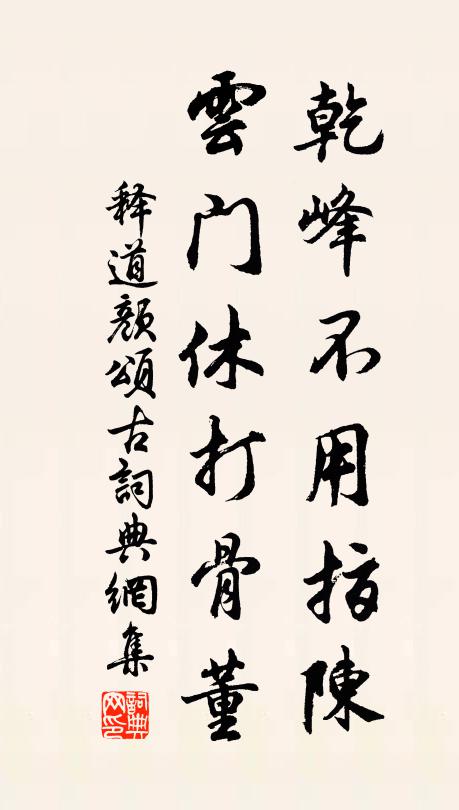 乾峰不用指陳
雲門休打骨董
释道颜頌古詞典網集
詞典网印